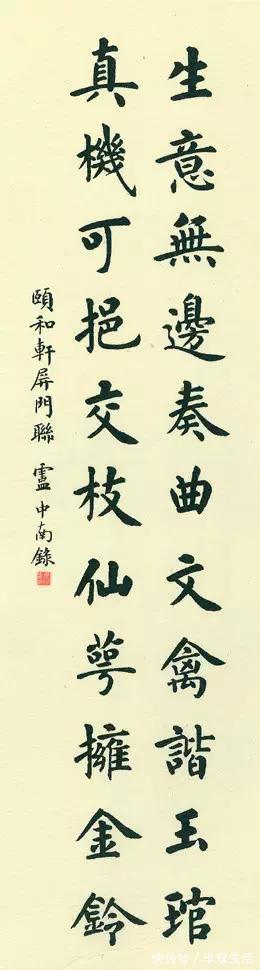 生意無邊奏曲文禽諧玉琯
真機可挹交枝仙萼擁金鈴
頤和軒屏門聯 盧中南錄
快传号/半双生活